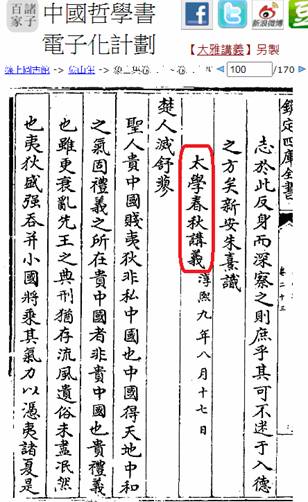 諸子百家
中國哲學書
電子化計劃
新浪微博
【大雅講義】另製
100 /170
欽定四庫全書
卷二十三
志於此反身而深察之則庶乎其可不迷于入德
之方矣新安朱熹識
太學春秋講義 淳熙九年八月十七日
楚人滅舒蓼
聖人貴中國賤夷狄非私中國也中國得天地中和
之氣固禮義之所在貴中國者非貴中國也貴禮義
也雖更衰亂先王之典刑猶存流風遺俗未盡泯然
也夷狄盛强吞并小國將乘其氣力以憑夷諸夏是